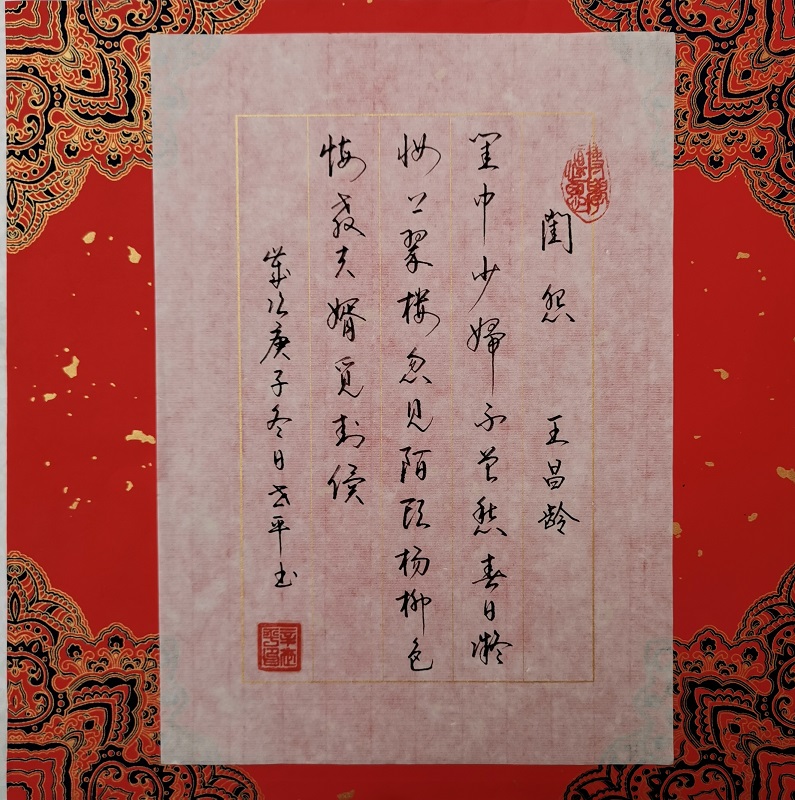 閨怨 王昌龄
闺中少婦不曾愁春日凝
妆上翠楼忽见陌头杨柳色
悔教夫婿觅封侯
歲次庚子冬日世平书
博學慎思